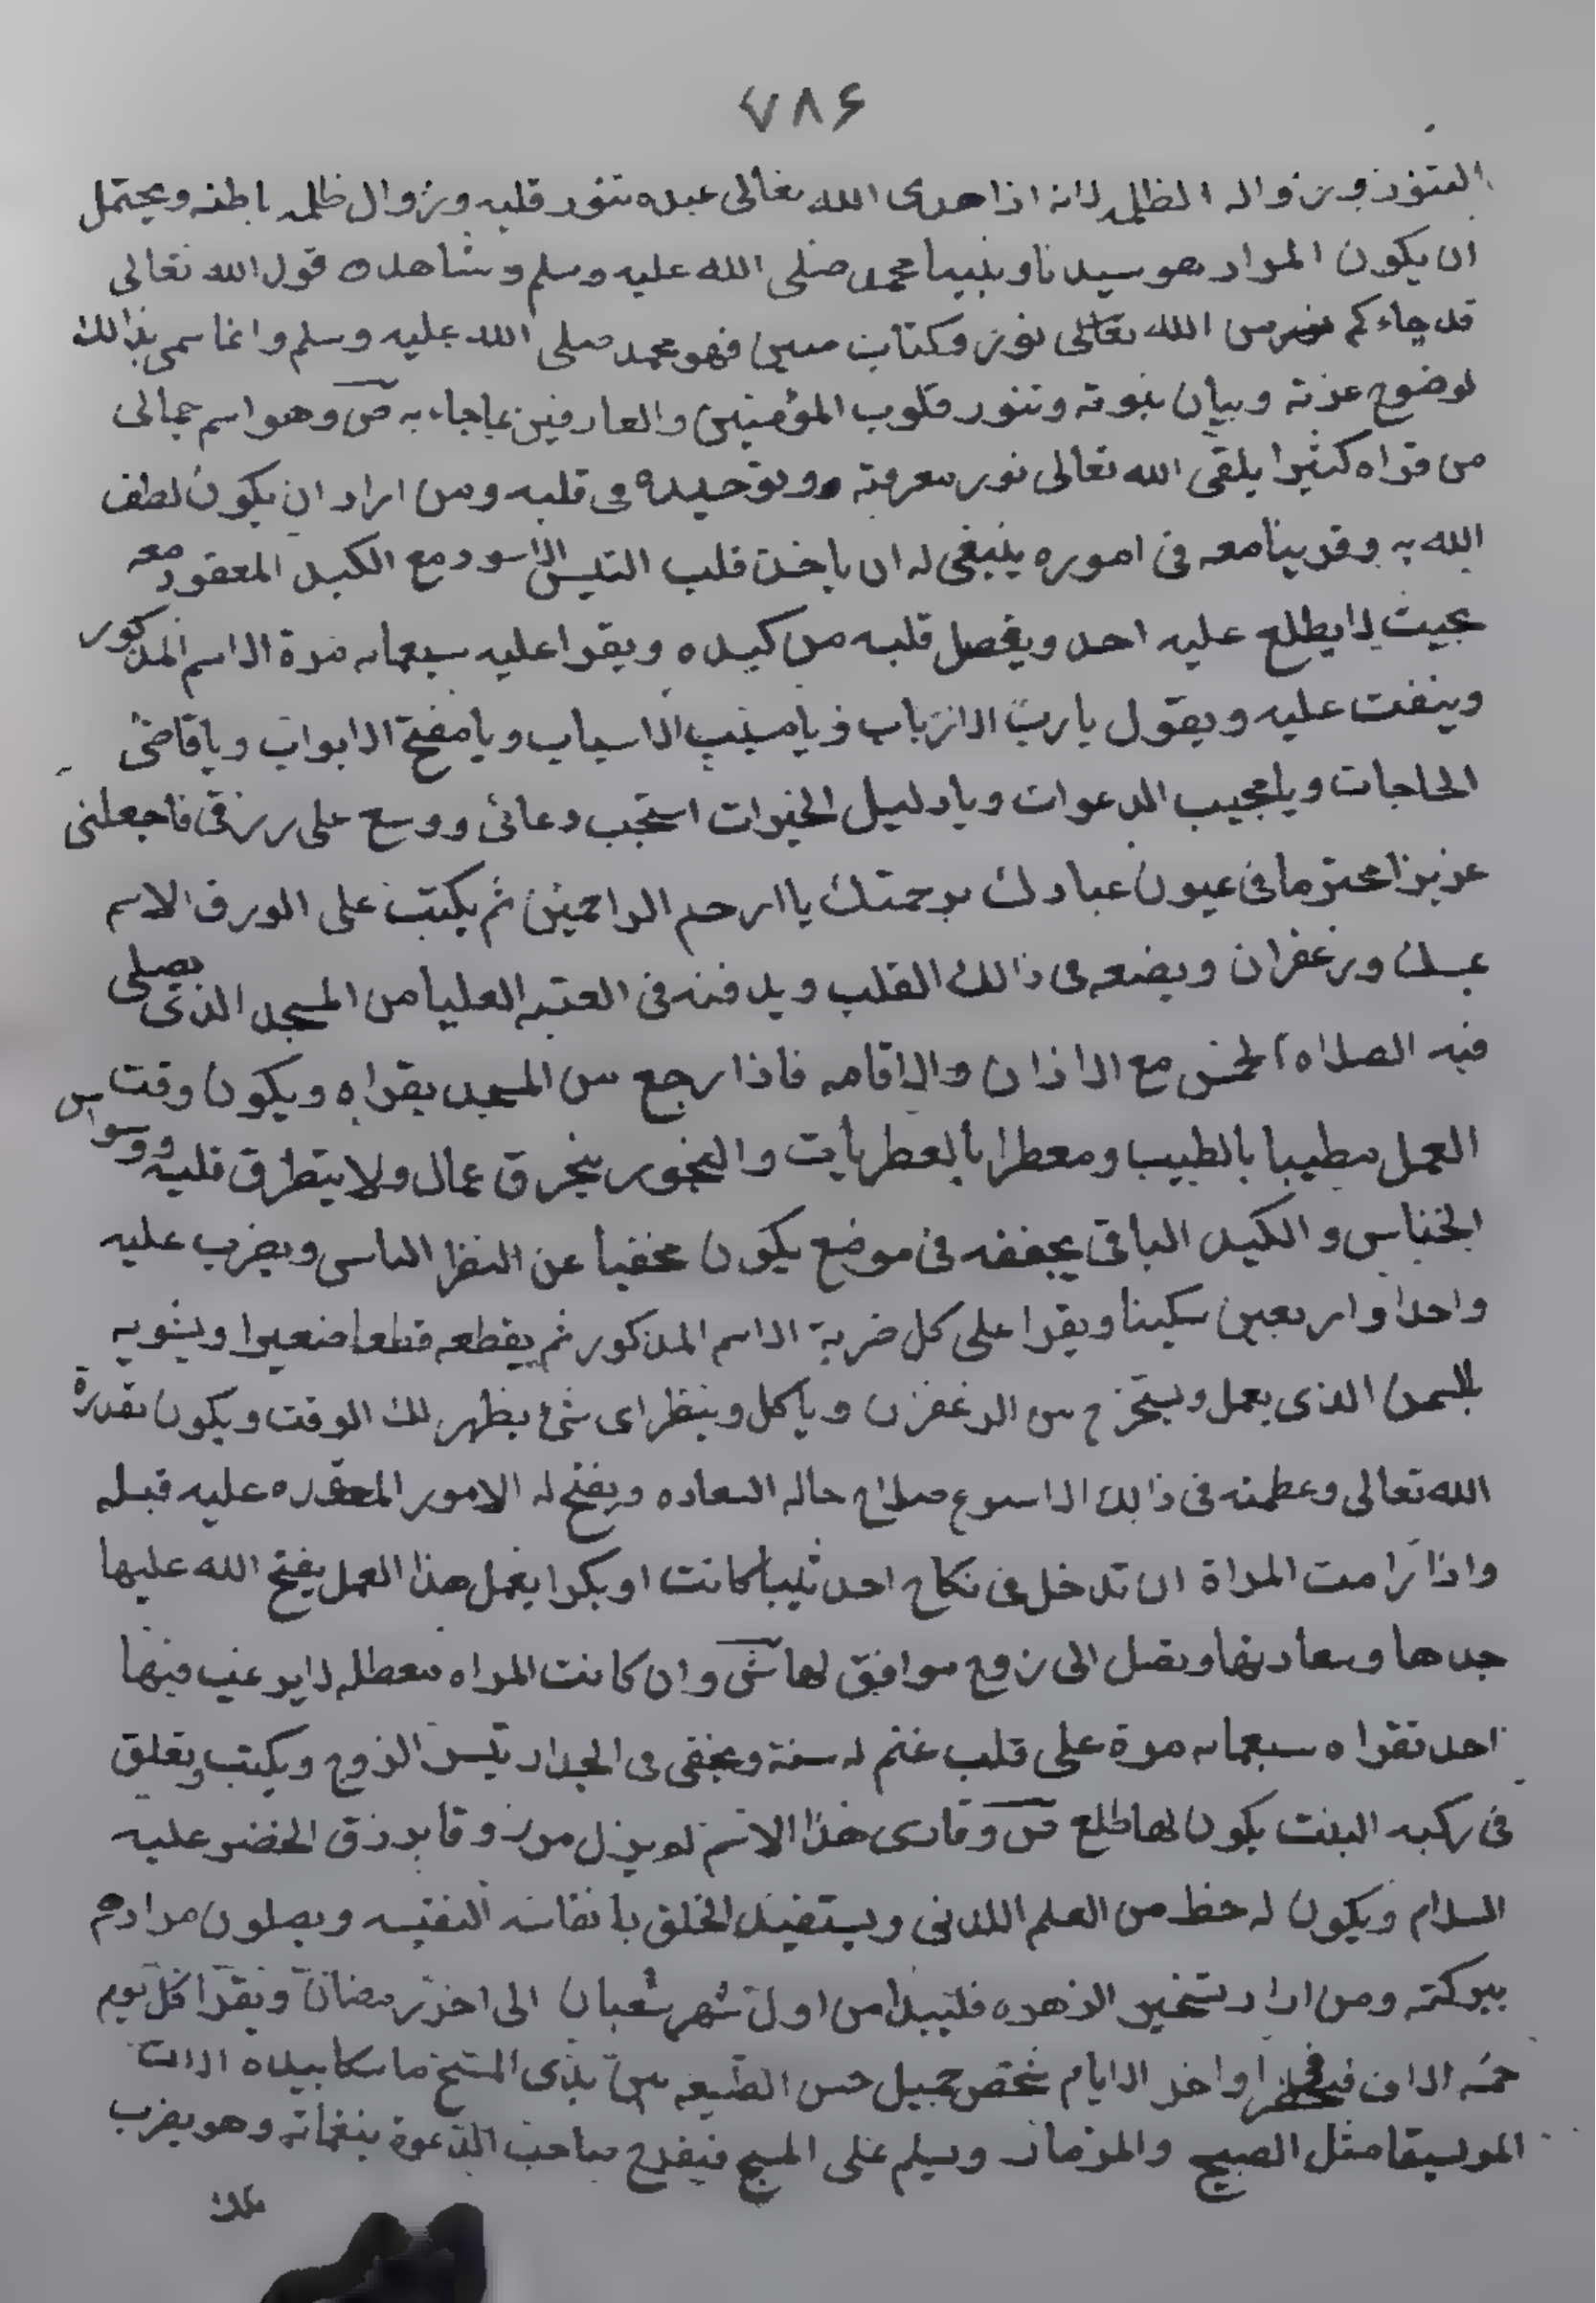 ٧٨٦
التنور وبزواله الظلمه لانه اذا هدى الله تعالى عبده تنور قلبه وزوال ظلمه باطنه ويحتمل
ان يكون المراد هو سيدنا ونبينا محمد صلى الله عليه وسلم وشاهده قول الله تعالى
قد جاءكم من الله تعالى نور وكتاب مبين فهو محمد صلى الله عليه وسلم وانما سمى بذالك
لوضوح عزته وبيان نبوته وتنور قلوب المؤمنين والعارفين بما جاء به ص وهو اسم جمالى
من قراه كثيرا يلقى الله تعالى نور معرفته وتوحيده فى قلبه ومن اراد ان يكون لطف
الله به وقرينا معه فى اموره ينبغى له ان ياخذ قلب التيس الاسود مع الكبد المعقود معه
بحيث لا يطلع عليه احد ويفصل قلبه من كبده ويقرا عليه سبعمايه مرة الاسم المذكور
وينفث عليه ويقول يا رب الارباب ويا مسبب الاسباب ويا مفتح الابواب ويا قاضى
الحاجات ويا مجيب الدعوات ويا دليل الخيرات استجب دعائى ووسع على رزقى فاجعلنى
عزيزا محترما فى عيون عبادك برحمتك يا ارحم الراحمين ثم يكتب على الورق الاسم
بمسك وزعفران ويضعه فى ذالك القلب ويدفنه فى العتبه العليا من المسجد الذى يصلى
فيه الصلاه الخمس مع الاذان والاقامه فاذا رجع من المسجد يقراه ويكون وقت
العمل مطيبا بالطيب ومعطرا بالعطريات والبخور يحرق عمال ولا يتطرق قلبه وسواس
الخناس والكبد الباقى يجففه فى موضع يكون مخفيا عن النظر الناس ويضرب عليه
واحدا واربعين سكينا ويقرا على كل ضربة الاسم المذكور ثم يقطعه قطعا صغيرا ويشويه
بالسمن الذى يعمل ويستخرج من الزعفرن وياكل وينظر اى شئ يظهر لك الوقت ويكون بقدرة
الله تعالى وعظمته فى ذالك الاسبوع صلاح حاله السعاده ويفتح له الامور المعقده عليه قبله
واذا رامت المراة ان تدخل فى نكاح احد ثيبا كانت او بكرا يعمل هذا العمل يفتح الله عليها
جدها وسعادتها وتصل الى زوج موافق لها وان كانت المراه معطله لا يرغب فيها
احد تقراه سبعمايه مرة على قلب غنم له سنة ويخفى فى الجدار تيسر الزوج ويكتب ويعلق
فى ركبه البنت يكون لها طلع وقارى هذا الاسم لم يزل مرزوقا برزق الخضر عليه
السلام ويكون له حظ من العلم اللدنى ويستفيد الخلق بانفاسه النفيسه ويصلون مرادهم
ببركته ومن اراد تسخير الزهره فليبدا من اول شهر شعبان الى اخر رمضان ويقرا كل يوم
خمسه الاف فيحضر فى اواخر الايام شخص جميل حسن الطبيعه بين يدى المسخ ماسكا بيده الات
الموسيقا مثل الصبيح والمزمار ويسلم على المسبح فيفرح صاحب الدعوة بنغماته وهو يضرب